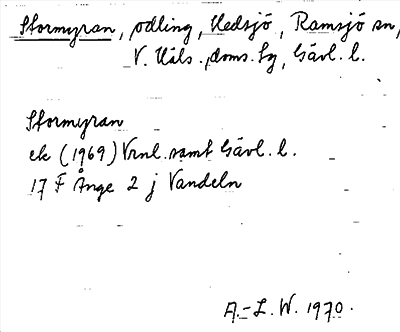 Stormyran, odling, Hedsjö, Ramsjö sn,
V. Häls. doms. sg, Gävl. l.
Stormyran
ek (1969) Vrnl. samt Gävl. l.
17 F Ånge 2 j Vandeln
A.-L. W. 1970.